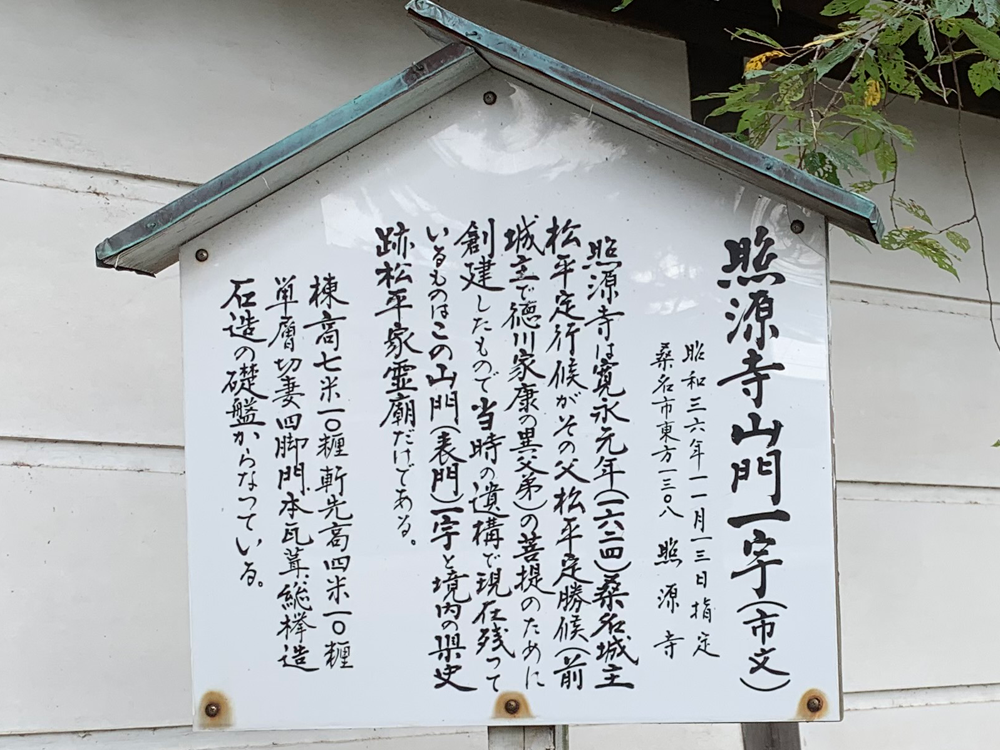 照源寺山門一宇(市文)
昭和三六年一一月一三日指定
桑名市東方一三〇八 照源寺
照源寺は寛永元年(一六二四)桑名城主
松平定行候がその父松平定勝候(前
城主で徳川家康の異父弟)の菩提のために
創建したもので当時の遺構で現在残って
いるものはこの山門(表門)一宇と境内の県史
跡松平家霊廟だけである。
棟高七米一〇糎軒先高四米一〇糎
単層切妻四脚門本瓦葺、総欅造
石造の礎盤からなっている。